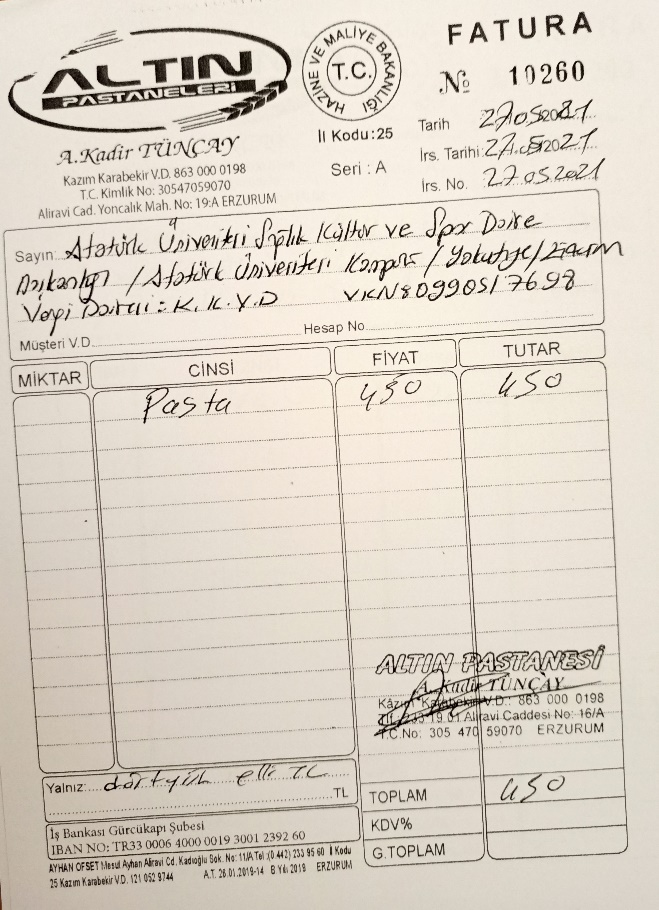 ALTIN
PASTANELERİ
HAZİNE VE MALİYE BAKANLIĞI
T.C.
FATURA
№ 10260
A.Kadir TÜNÇAY
Kazım Karabekir V.D. 863 000 0198
T.C. Kimlik No: 30547059070
Aliravi Cad. Yoncalık Mah. No: 19:A ERZURUM
İl Kodu:25
Seri : A
Tarih 27.05.2021
İrs. Tarihi: 27.05.2021
İrs. No. 27.05.2021
Sayın: Atatürk Üniversitesi Sağlık Kültür ve Spor Daire
Başkanlığı / Atatürk Üniversitesi Kampüs / Yakutiye / Erzurum
Vergi Dairesi: K.K.V.D VKN:
Müşteri V.D. Hesap No.
MİKTAR CİNSİ FİYAT TUTAR
Pasta 450 450
ALTIN PASTANESİ
A. Kadir TÜNÇAY
Kâzım Karabekir V.D.: 863 000 0198
Aliravi Caddesi No: 16/A
T.C.No: 305 470 59070 ERZURUM
Yalnız: dörtyüz elli TL
TL
TOPLAM 450
KDV%
G.TOPLAM
İş Bankası Gürcükapı Şubesi
IBAN NO: TR33 0006 4000 0019 3001 2392 60
AYHAN OFSET Mesul Ayhan Aliravi Cd. Kadıoğlu Sok. No: 11/A Tel :(0.442) 233 95 60 İl Kodu
25 Kazım Karabekir V.D. 121 052 9744 A.T. 26.01.2019-14 B.Yılı 2019 ERZURUM